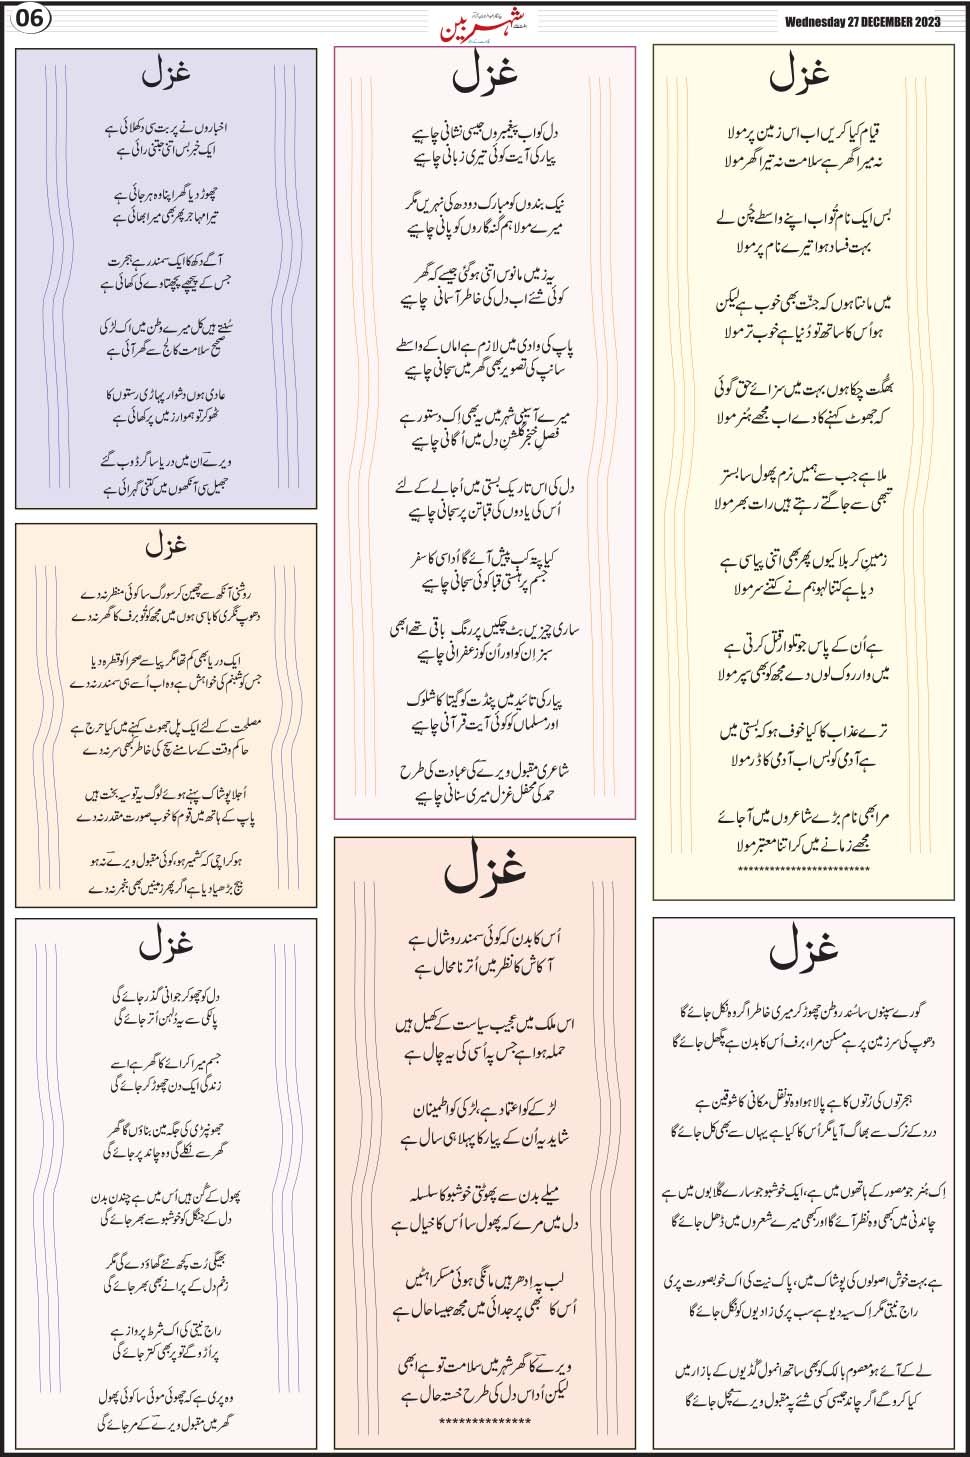 06
شہربین
Wednesday 27 DECEMBER 2023
غزل
قیام کیا کریں اب اس زمین پر مولا
نہ میرا گھر ہے سلامت نہ تیرا گھر مولا
بس ایک نام تُو اب اپنے واسطے چُن لے
بہت فساد ہوا تیرے نام پر مولا
میں مانتا ہوں کہ جنّت بھی خوب ہے لیکن
ہو اُس کا ساتھ تو دُنیا ہے خوب تر مولا
بھُگت چکا ہوں بہت میں سزائے حق گوئی
کہ جھوٹ کہنے کا دے اب مجھے ہُنر مولا
ملا ہے جب سے ہمیں نرم پھول سا بستر
تبھی سے جاگتے رہتے ہیں رات بھر مولا
زمینِ کربلا کیوں پھر بھی اتنی پیاسی ہے
دیا ہے کتنا لہو ہم نے کتنے سر مولا
ہے اُن کے پاس جو تلوار قتل کرتی ہے
میں وار روک لوں دے مجھ کو بھی سپر مولا
ترے عذاب کا کیا خوف ہو کہ بستی میں
ہے آدمی کو بس اب آدمی کا ڈر مولا
مرا بھی نام بڑے شاعروں میں آ جائے
مجھے زمانے میں کر اتنا معتبر مولا
*************************
غزل
گورے سپنوں سا سُندر وطن چھوڑ کر میری خاطر اگر وہ نکل جائے گا
دھوپ کی سرزمین پر ہے مسکن مرا، برف اُس کا بدن ہے پگھل جائے گا
ہجرتوں کی رُتوں کا ہے پالا ہوا وہ تو نقل مکانی کا شوقین ہے
درد کے نرک سے بھاگ آیا مگر اُس کا کیا ہے یہاں سے بھی کل جائے گا
اِک ہُنر جو مصور کے ہاتھوں میں ہے، ایک خوشبو جو سارے گلابوں میں ہے
چاندنی میں کبھی وہ نظر آئے گا اور کبھی میرے شعروں میں ڈھل جائے گا
ہے بہت خوش اصولوں کی پوشاک میں، پاک نیت کی اک خوبصورت پری
راج نیتی مگر اِک سیہ دیو ہے سب پری زادیوں کو نگل جائے گا
لے کے آئے ہو معصوم بالک کو بھی ساتھ انمول گُڈیوں کے بازار میں
کیا کرو گے اگر چاند جیسی کسی شئے پہ مقبول ویرےؔ مچل جائے گا
غزل
دل کو اب پیغمبروں جیسی نشانی چاہیے
پیار کی آیت کوئی تیری زبانی چاہیے
نیک بندوں کو مبارک دودھ کی نہریں مگر
میرے مولا ہم گنہ گاروں کو پانی چاہیے
یہ زمیں مانوس اتنی ہو گئی جیسے کہ گھر
کوئی شئے اب دل کی خاطر آسمانی چاہیے
پاپ کی وادی میں لازم ہے اماں کے واسطے
سانپ کی تصویر بھی گھر میں سجانی چاہیے
میرے آسیبی شہر میں یہ بھی اِک دستور ہے
فصلِ خنجر گلشنِ دل میں اُگانی چاہیے
دل کی اس تاریک بستی میں اُجالے کے لئے
اُس کی یادوں کی قبا تن پر سجانی چاہیے
کیا پتہ کب پیش آئے گا اُداسی کا سفر
جسم پر ہنستی قبا کوئی سجانی چاہیے
ساری چیزیں بٹ چکیں پر رنگ باقی تھے ابھی
سبز اِن کو اور اُن کو زعفرانی چاہیے
پیار کی تائید میں پنڈت کو گیتا کا شلوک
اور مسلماں کو کوئی آیت قرآنی چاہیے
شاعری مقبول ویرےؔ کی عبادت کی طرح
حمد کی محفل غزل میری سنانی چاہیے
غزل
اُس کا بدن کہ کوئی سمندر وشال ہے
آکاش کا نظر میں اُترنا محال ہے
اس ملک میں عجیب سیاست کے کھیل ہیں
حملہ ہوا ہے جس پہ اُسی کی یہ چال ہے
لڑکے کو اعتماد ہے، لڑکی کو اطمینان
شاید یہ اُن کے پیار کا پہلا ہی سال ہے
میلے بدن سے پھوٹتی خوشبو کا سلسلہ
دل میں مرے کہ پھول سا اُس کا خیال ہے
لب پہ اِدھر ہیں مانگی ہوئی مسکراہٹیں
اُس کا بھی پر جدائی میں مجھ جیسا حال ہے
ویرےؔ کا گھر شہر میں سلامت تو ہے ابھی
لیکن اُداس دل کی طرح خستہ حال ہے
**************
غزل
اخباروں نے پربت سی دکھلائی ہے
ایک خبر بس اتنی جتنی رائی ہے
چھوڑ دیا گھر اپنا وہ ہرجائی ہے
تیرا مہاجر پھر بھی میرا بھائی ہے
آگے دکھ کا ایک سمندر ہے ہجرت
جس کے پیچھے پچھتاوے کی کھائی ہے
سُنتے ہیں کل میرے وطن میں اک لڑکی
صحیح سلامت کالج سے گھر آئی ہے
عادی ہوں دشوار پہاڑی رستوں کا
ٹھوکر تو ہموار زمیں پر کھائی ہے
ویرےؔ ان میں دریا ساگر ڈوب گئے
جھیل سی آنکھوں میں کتنی گہرائی ہے
غزل
روشنی آنکھ سے چھین کر سورگ سا کوئی منظر نہ دے
دھوپ نگری کا باسی ہوں میں مجھ کو تُو برف کا گھر نہ دے
ایک دریا بھی کم تھا مگر پیاسے صحرا کو قطرہ دیا
جس کو شبنم کی خواہش ہے وہ اب اُسے ہی سمندر نہ دے
مصلحت کے لئے ایک پل جھوٹ کہنے میں کیا حرج ہے
حاکمِ وقت کے سامنے سچ کی خاطر بھی سر نہ دے
اُجلا پوشاک پہنے ہوئے لوگ یہ تو سیہ بخت ہیں
پاپ کے ہاتھ میں قوم کا خوب صورت مقدر نہ دے
ہو کراچی کہ کشمیر ہو، کوئی مقبول ویرےؔ نہ ہو
بیج بڑھیا دیا ہے اگر پھر زمینیں بھی بنجر نہ دے
غزل
دل کو چھو کر جوانی گذر جائے گی
پالکی سے یہ دُلہن اُتر جائے گی
جسم میرا کرائے کا گھر ہے اسے
زندگی ایک دن چھوڑ کر جائے گی
جھونپڑی کی جگہ مین بناؤں گا گھر
گھر سے نکلے گی وہ چاند پر جائے گی
پھول کے گُن ہیں اُس میں ہے چندن بدن
دل کے جنگل کو خوشبو سے بھر جائے گی
بھیگی رُت کچھ نئے گھاؤ دے گی مگر
زخم دل کے پرانے بھی بھر جائے گی
راج نیتی کی اک شرط پرواز ہے
پر اُڑو گے تو پر بھی کتر جائے گی
وہ پری ہے کہ چھوئی موئی سا کوئی پھول
گھر میں مقبول ویرےؔ کے مر جائے گی